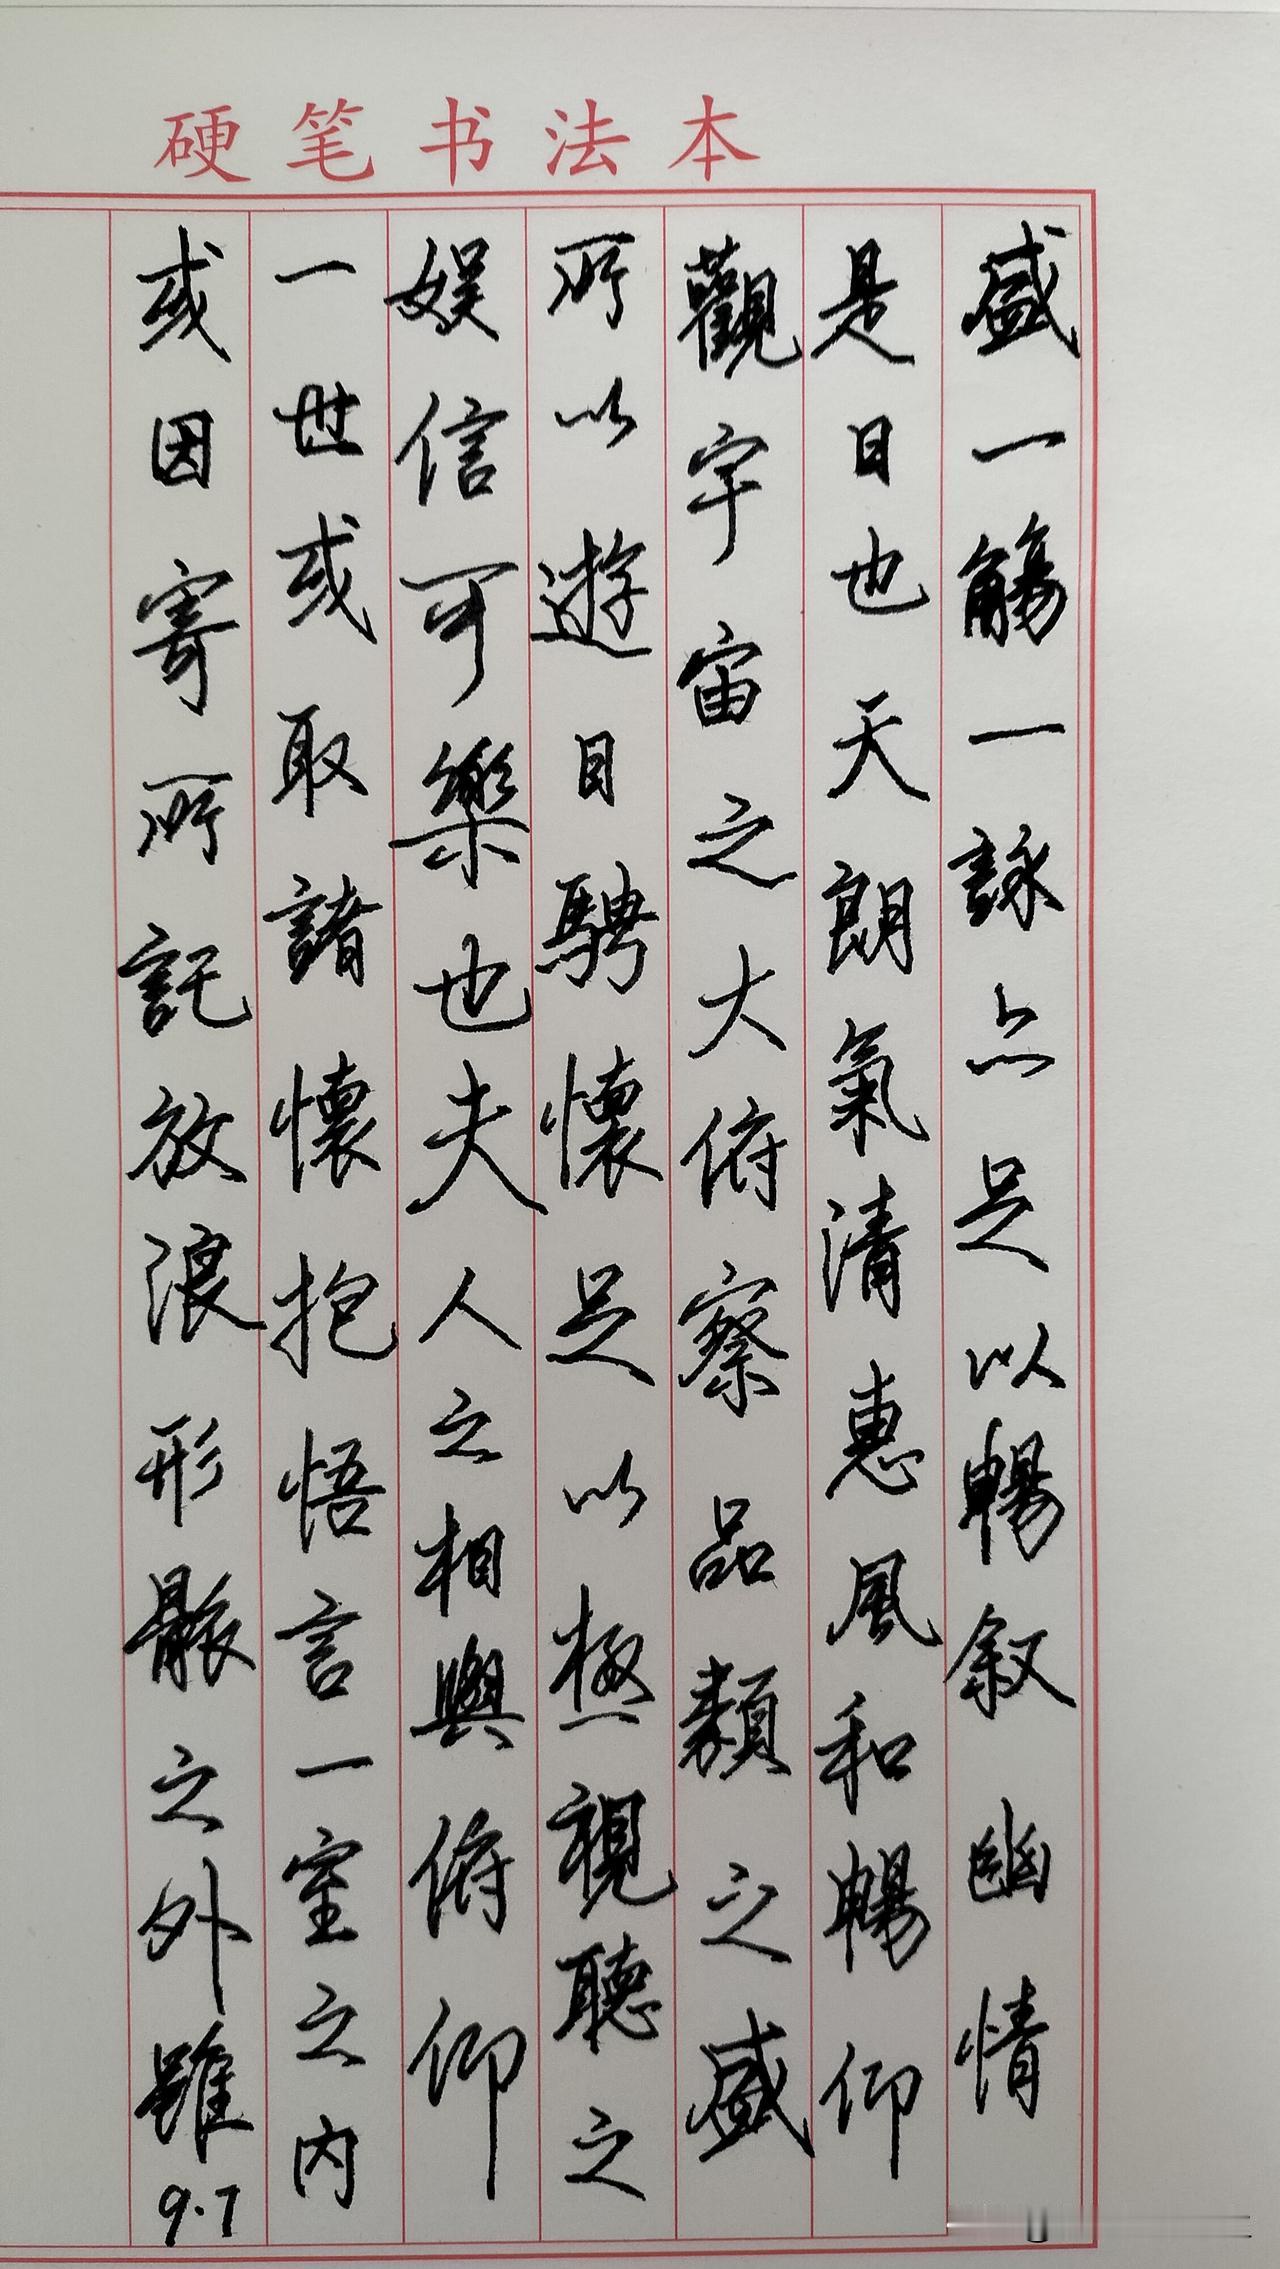 硬笔书法本
盛一觴一詠亦足以暢叙幽情
是日也天朗氣清惠風和暢仰
觀宇宙之大俯察品類之盛
所以遊目騁懷足以極視聽之
娱信可樂也夫人之相與俯仰
一世或取諸懷抱悟言一室之内
或因寄所託放浪形骸之外雖
9.7